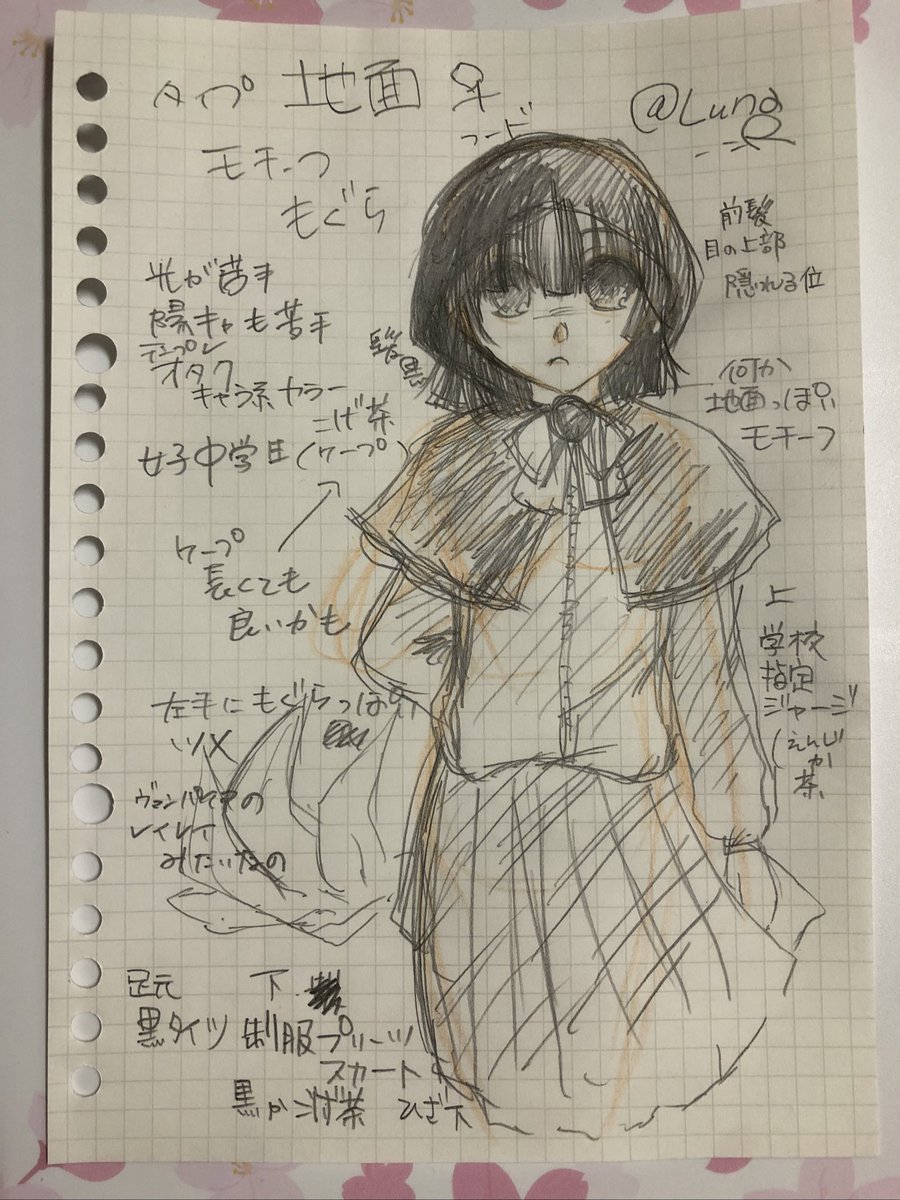 タイプ 地面 ♀
@Luna
フード
モチーフ
もぐら
前髪
目の上部
隠れる位
光が苦手
陽キャも苦手
テンプレ
オタク
キャラ系 カラー
髪黒
何か
地面っぽい
モチーフ
こげ茶
女子中学生 (ケープ)
ケープ
長くても
良いかも
上
学校
指定
ジャージ
(えんじ
か
茶
左手にもぐらっぽい
ツメ
ヴァンパイアの
レイレイ
みたいなの
足元
黒タイツ
下
制服プリーツ
スカート
黒かこげ茶 ひざ下